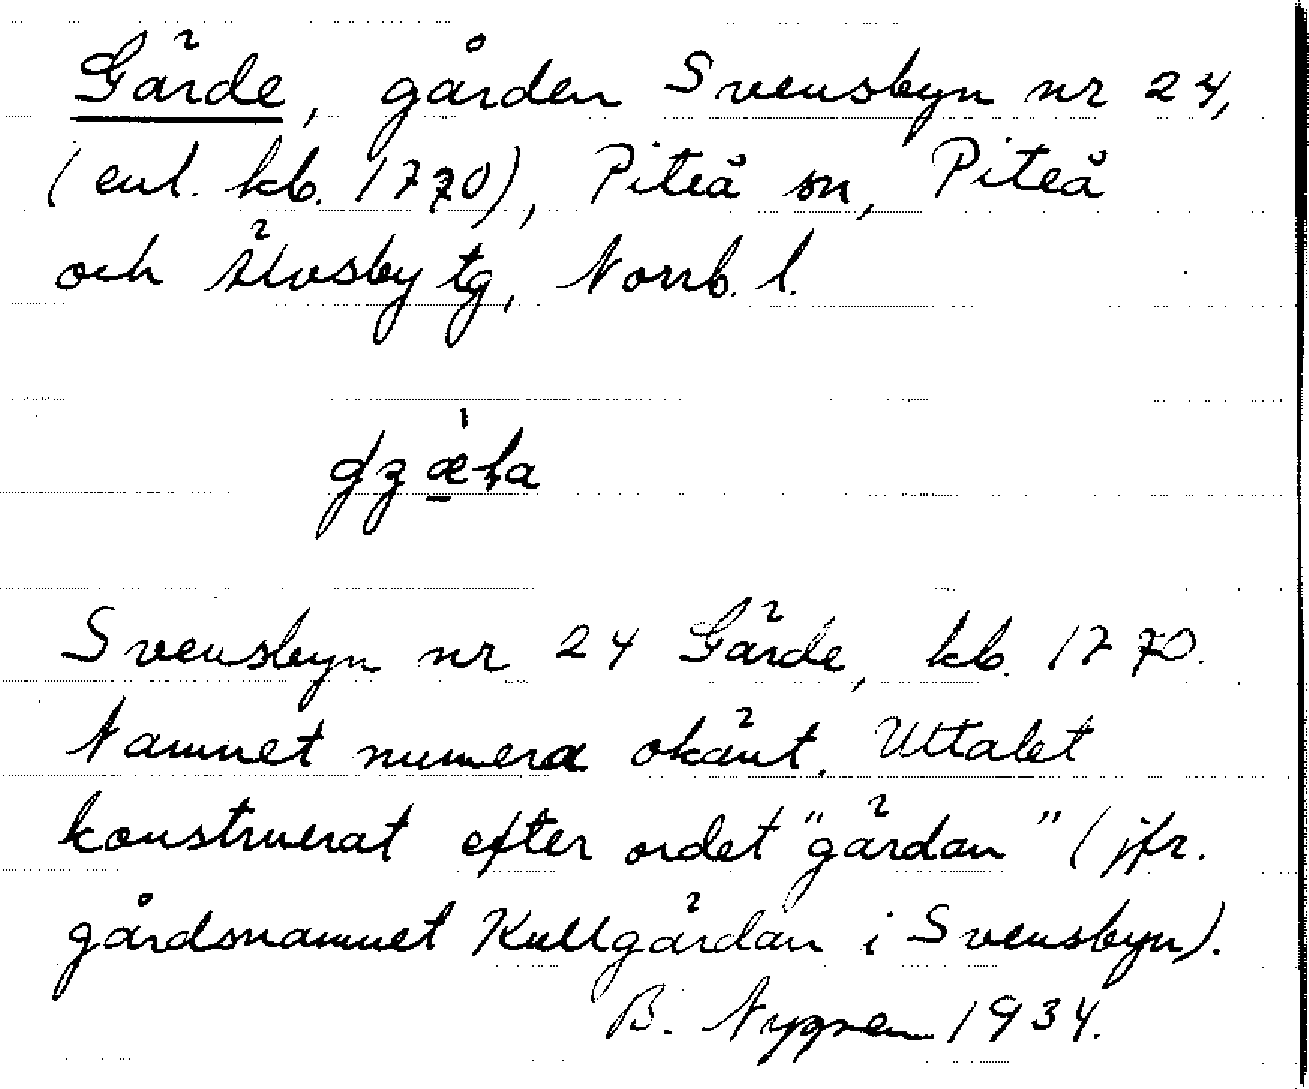 Gärde, gården Svensbyn nr 24,
(enl. kb. 1770), Piteå sn, Piteå
och Älvsby tg, Norrb. l.
Svensbyn nr 24 Gärde, kb. 1770.
Namnet numera okänt. Uttalet
konstruerat efter ordet "gärdan" (jfr.
gårdsnamnet Kullgärdan i Svensbyn).
B. Nygren 1934.